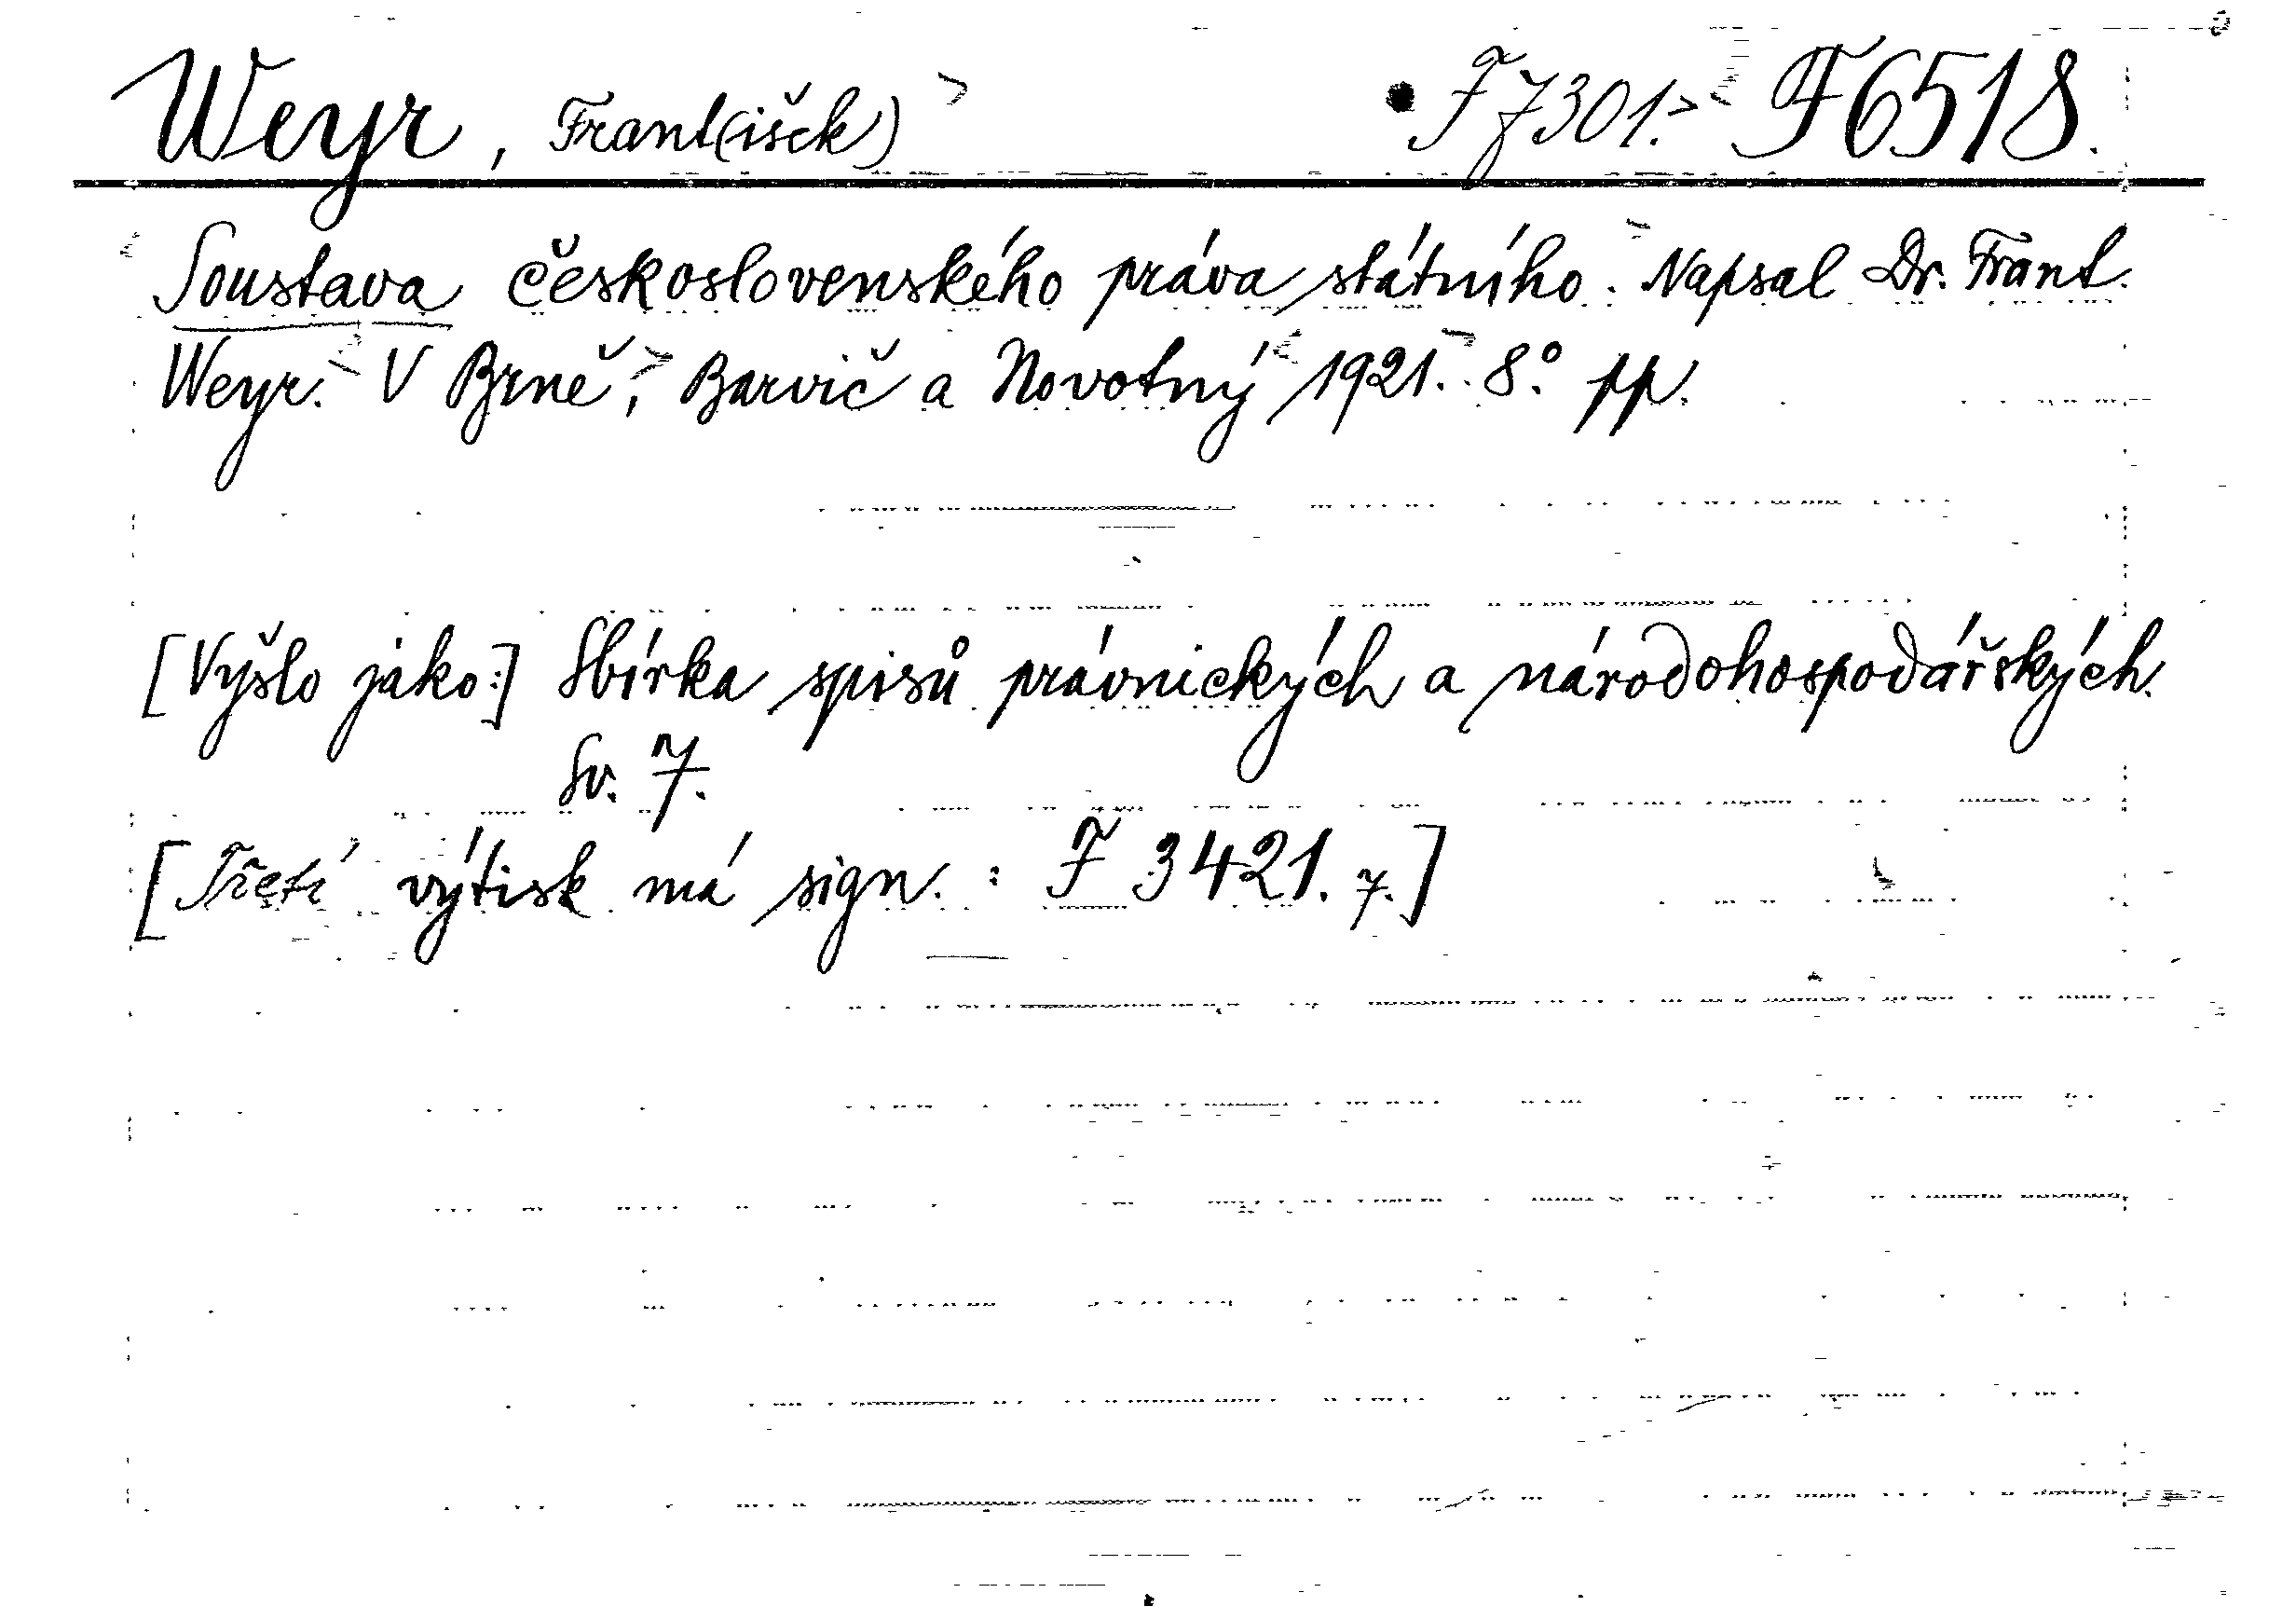 Weyr, Frant(išek) F 7301. F 6518.
Soustava československého práva státního. Napsal Dr. Frant.
Weyr. V Brně, Barvič a Novotný 1921. 8.° pp.
[Vyšlo jako:] Sbírka spisů právnických a národohospodářských.
Sv. 7.
[Třetí výtisk má sign. : F 3421. 7.]